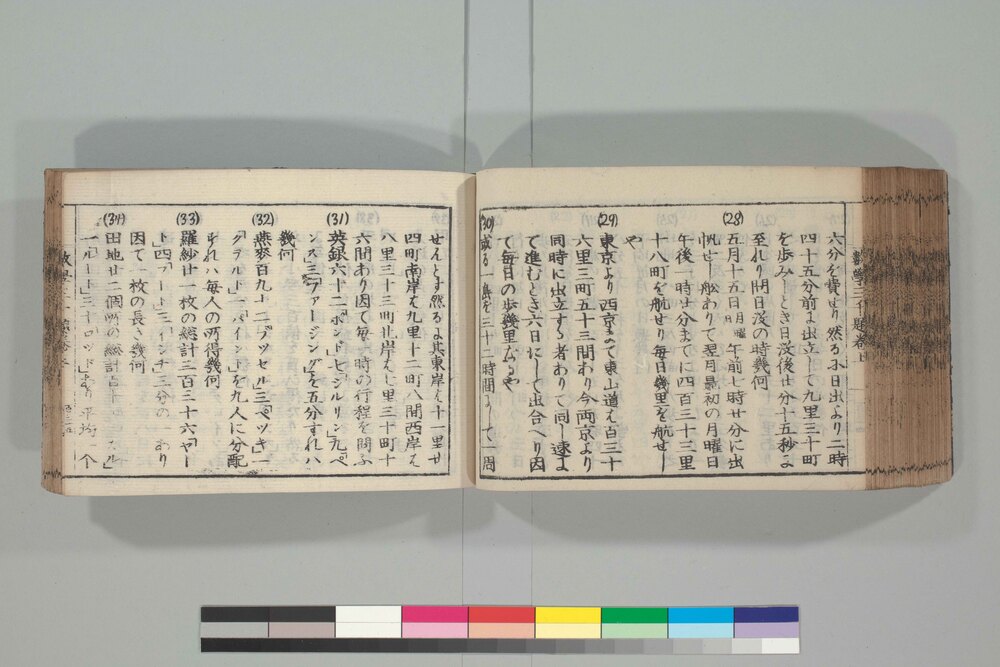 六分を費せり然るに日出より二時
四十五分前に出立して九里三十町
を歩みしとき日没後廿分十五秒に
至れり問日没の時幾何
(28) 五月十五日日月曜午前七時廿分に出
帆せし舩ありて翌月最初の月曜日
午後一時廿分までに四百三十三里
十八町を航せり毎日幾里を航せし
や
(29) 東京より西京まで東山道を百三十
六里三町五十三間あり今両京より
同時に出立する者ありて同し速に
て進むとき六日にして出合へり因
て毎日の歩幾里なるや
(30) 或る一島を三十二時間にして一周
せんとす然るに其東岸を十一里廿
四町南岸を九里十二町八間西岸を
八里三十三町北岸を七里三十町十
六間あり因て毎一時の行程を問ふ
(31) 英銀六十二「ポンド」七「シルリン」九「ペ
ンス」三「ファージング」を五分すれハ
幾何
(32) 燕麥百九十二「ブッセル」三「ペッキ」
「ガヲルト」一「パイント」を九人に分配
すれハ毎人の所得幾何
(33) 羅紗廿一枚の総計三百三十六「ヤー
ド」四「フート」三「インチ」三分の あり
因て一枚の長さ幾何
(34) 田地廿二個所の総計
一「ルード」三十「ロッド」あり平均一个